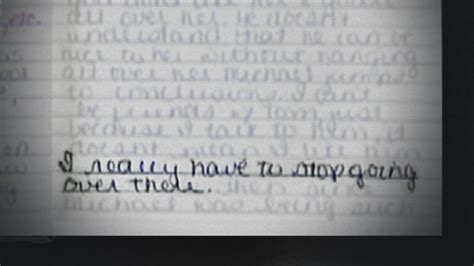 etc. all over her, he doesn't
understand that he can be
nice to her without hanging
all over her Michael jumps
to conclusions, I can't
be friends w/ Tom just
because I talk to him, it
doesnt mean I like him
I really have to stop going
over there. then
Michael was being such